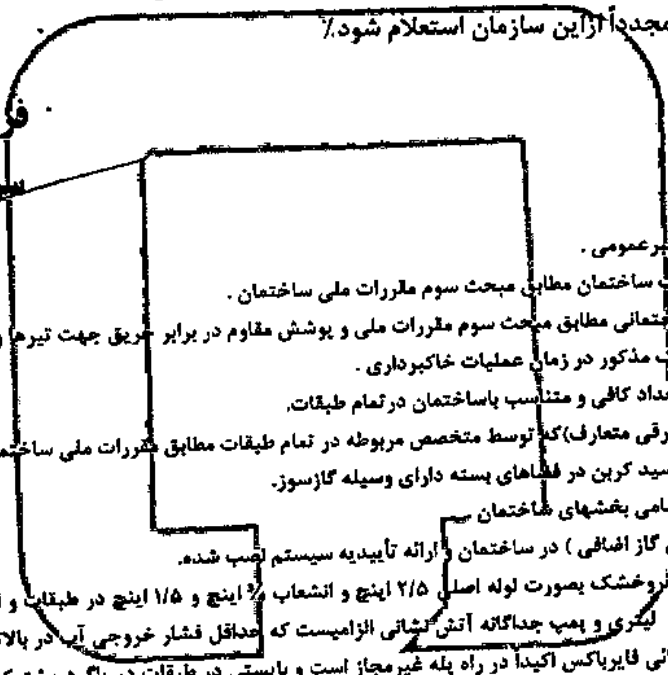 مجدداً ازاین سازمان استعلام شود./
فر
برعمومی .
ساختمان مطابق مبحث سوم مقررات ملی ساختمان .
ختمانی مطابق مبحث سوم مقررات ملی و پوشش مقاوم در برابر حریق جهت تیرها و
مذکور در زمان عملیات خاکبرداری .
داد کافی و متناسب باساختمان در تمام طبقات.
رقی متعارف)که توسط متخصص مربوطه در تمام طبقات مطابق مقررات ملی ساختم
سید کربن در فضاهای بسته دارای وسیله گازسوز.
امی بخشهای ساختمان
گاز اضافی ) در ساختمان و ارائه تأییدیه سیستم نصب شده.
تروخشک بصورت لوله اصلی ۲/۵ اینچ و انشعاب ¾ اینچ و ۱/۵ اینچ در طبقات و ا
لیتری و پمپ جداگانه آتش نشانی الزامیست که حداقل فشار خروجی آب در بالات
انی فایرباکس اکیداً در راه پله غیرمجاز است و بایستی در طبقات در